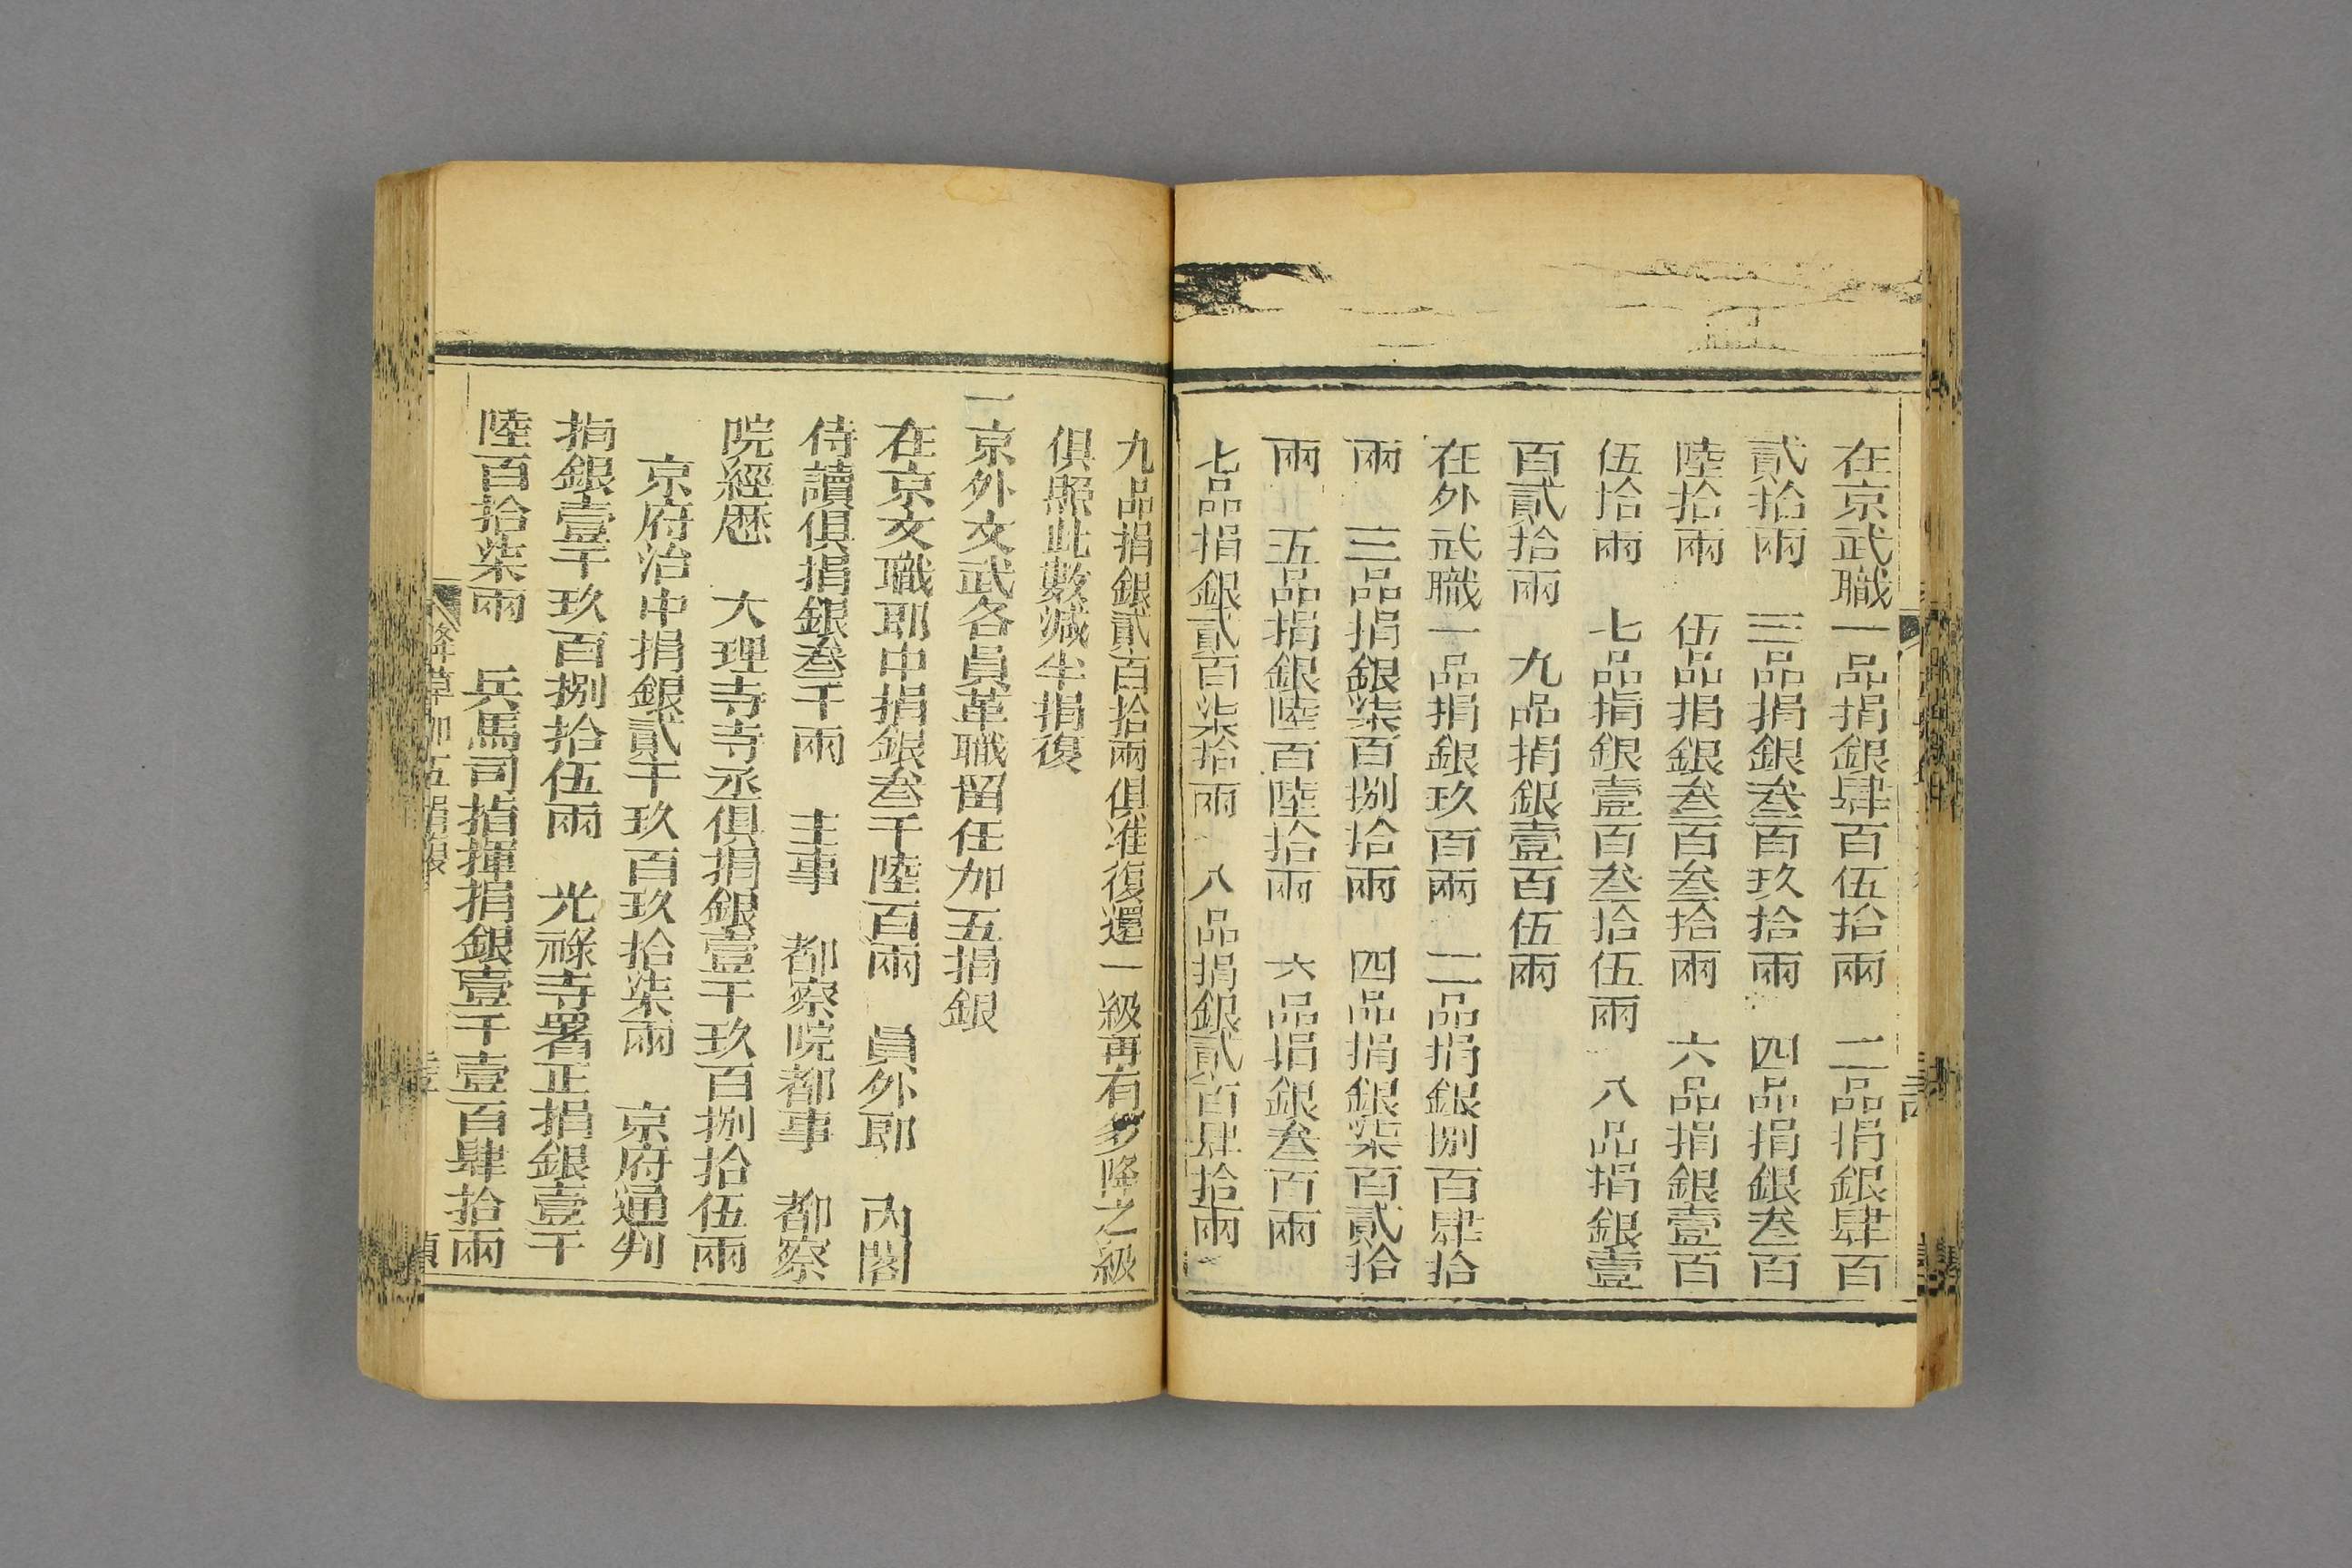 在京武職一品捐銀肆百伍拾兩　二品捐銀肆百
貳拾兩　三品捐銀叁百玖拾兩　四品捐銀叁百
陸拾兩　伍品捐銀叁百叁拾兩　六品捐銀壹百
伍拾兩　七品捐銀壹百叁拾伍兩　八品捐銀壹
百貳拾兩　九品捐銀壹百伍兩
在外武職一品捐銀玖百兩　二品捐銀捌百肆拾
兩　三品捐銀柒百捌拾兩　四品捐銀柒百貳拾
兩　五品捐銀陸百陸拾兩　六品捐銀叁百兩
七品捐銀貳百柒拾兩　八品捐銀貳百肆拾兩
九品捐銀貳百拾兩俱准復還一級再有多降之級
俱照此數減半捐復
一京外文武各員革職留任加五捐銀
在京文職郎中捐銀叁千陸百兩　員外郎　內閣
侍讀俱捐銀叁千兩　主事　都察院都事　都察
院經歷　大理寺寺丞俱捐銀壹千玖百捌拾伍兩
京府治中捐銀貳千玖百玖拾柒兩　京府通判
捐銀壹千玖百捌拾伍兩　光祿寺署正捐銀壹千
陸百拾柒兩　兵馬司指揮捐銀壹千壹百肆拾兩
降革加五捐銀